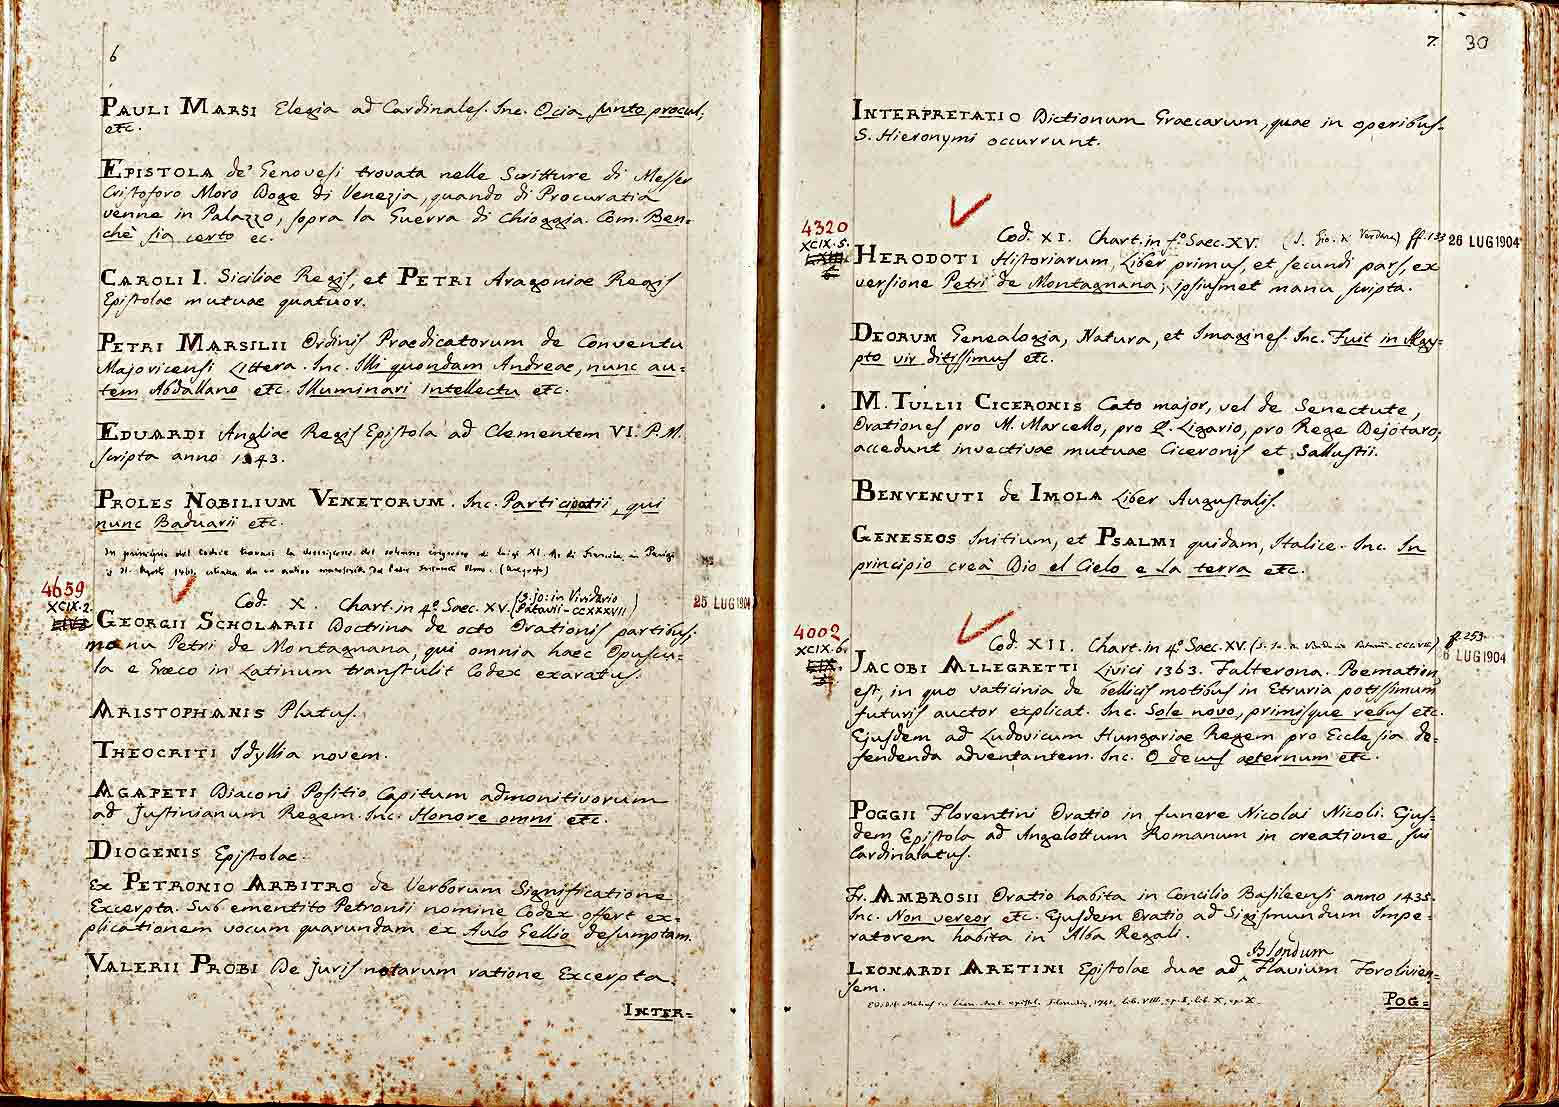 6
PAULI MARSI Elegia ad Cardinales. Inc. Ocia sunto procul,
etc.
EPISTOLA de' Genovesi trovata nelle Scritture di Messer
Cristoforo Moro Doge di Venezja, quando di Procuratia
venne in Palazzo, sopra la Guerra di Chioggia. Com. Ben=
chè sia certo ec.
CAROLI I. Siciliae Regis, et PETRI Aragoniae Regis
Epistolae mutuae quatuor.
PETRI MARSILII Ordinis Praedicatorum de Conventu
Majoricensi Littera. Inc. Illi quondam Andreae, nunc au=
tem Abdallano etc. Illuminari intellectu etc.
EDUARDI Angliae Regis Epistola ad Clementem VI. P. M.
scripta anno 1343.
PROLES NOBILIUM VENETORUM. Inc. Participatii, qui
nunc Baduarii etc.
In principio del codice trovasi la descrizione del solenne ingresso di Luigi XI. Re di Francia in Parigi
31. Agosto 1461. da un antico manoscritto del Padre
4659
XCIX.2.
Cod. X. Chart. in 4.º Saec. XV. (S. Jo: in Viridario
Patavii - CCXXXVII)
25 LUG 1904
GEORGII SCHOLARII Doctrina de octo Orationis partibus;
manu Petri de Montagnana, qui omnia haec Opuscu=
la e Græco in Latinum transtulit Codex exaratus.
ARISTOPHANIS Plutus.
THEOCRITI Idyllia novem.
AGAPETI Diaconi Positio Capitum admonitivorum
ad Justinianum Regem. Inc. Honore omni etc.
DIOGENIS Epistolae.
Ex PETRONIO ARBITRO de Verborum Significatione
Excerpta. Sub ementito Petronii nomine Codex offert ex=
plicationem vocum quarundam ex Aulo Gellio desumptam.
VALERII PROBI De juris notarum ratione Excerpta.
INTER=
7. 30
INTERPRETATIO Dictionum Graecarum, quae in operibus
S. Hieronymi occurrunt.
4320
XCIX.5.
Cod. XI. Chart. in f.º Saec. XV. (S. Gio. in Verdara) ff. 133 26 LUG 1904
HERODOTI Historiarum, Liber primus, et secundi pars, ex
versione Petri de Montagnana; ipsiusmet manu scripta.
DEORUM Genealogia, Natura, et Imagines. Inc. Fuit in Aegy=
pto vir ditissimus etc.
M. TULLII CICERONIS Cato major, vel de Senectute,
Orationes pro M. Marcello, pro Q. Ligario, pro Rege Dejotaro;
accedunt invectivae mutuae Ciceronis et Sallustii.
BENVENUTI de IMOLA Liber Augustalis.
GENESEOS Initium, et PSALMI quidam, Italice. Inc. In
principio creà Dio el Cielo e la terra etc.
4002
XCIX.6.
Cod. XII. Chart. in 4.º Saec. XV. (S. Jo. in Viridario Patavii CCLVII) ff. 253.
6 LUG 1904
JACOBI ALLEGRETTI Livici 1363. Falterona. Poemation
est, in quo vaticinia de bellicis motibus in Etruria potissimum
futuris auctor explicat. Inc. Sole novo, primisque rebus etc.
Ejusdem ad Ludovicum Hungariae Regem pro Ecclesia de=
fendenda adventantem. Inc. O decus aeternum etc.
POGGII Florentini Oratio in funere Nicolai Nicoli. Ejus=
dem Epistola ad Angelottum Romanum in creatione sui
Cardinalatus.
Fr. AMBROSII Oratio habita in Concilio Basileensi anno 1435.
Inc. Non vereor etc. Ejusdem Oratio ad Sigismundum Impe=
ratorem habita in Alba Regali.
Blondum
LEONARDI ARETINI Epistolae duae ad Flavium Forolivien=
sem.
Edit. Mehus in Leon. Aret. epist. Florentiae, 1741. lib. VIII. ep. I. lib. X, ep. X.
POG=